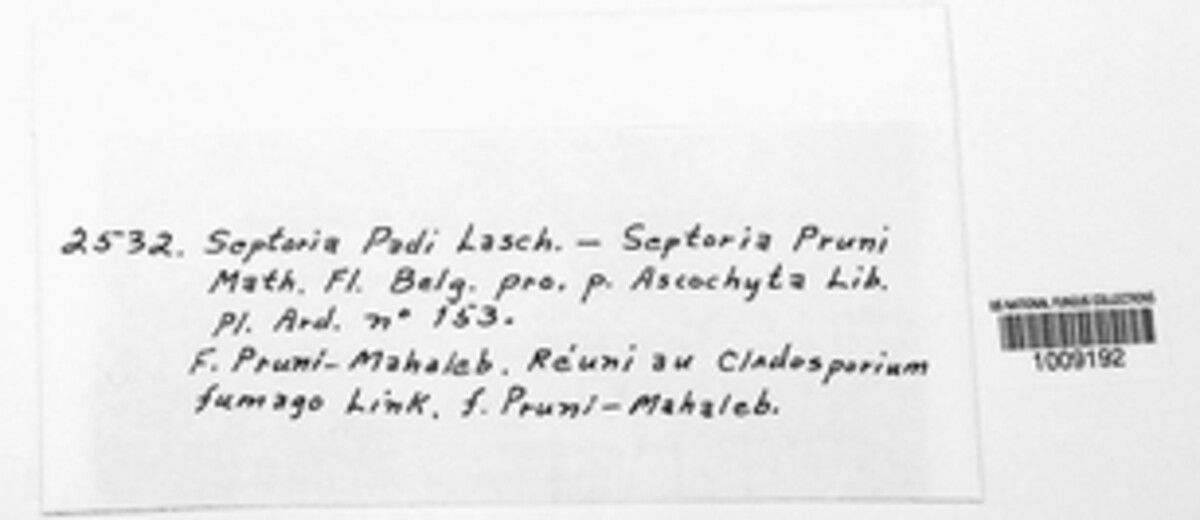 2532. Septoria Padi Lasch. – Septoria Pruni
Math. Fl. Belg. pro. p. Ascochyta Lib.
Pl. Ard. n° 153.
F. Pruni-Mahaleb. Réuni au Cladosporium
fumago Link. f. Pruni-Mahaleb.
US NATIONAL FUNGUS COLLECTIONS
1009192